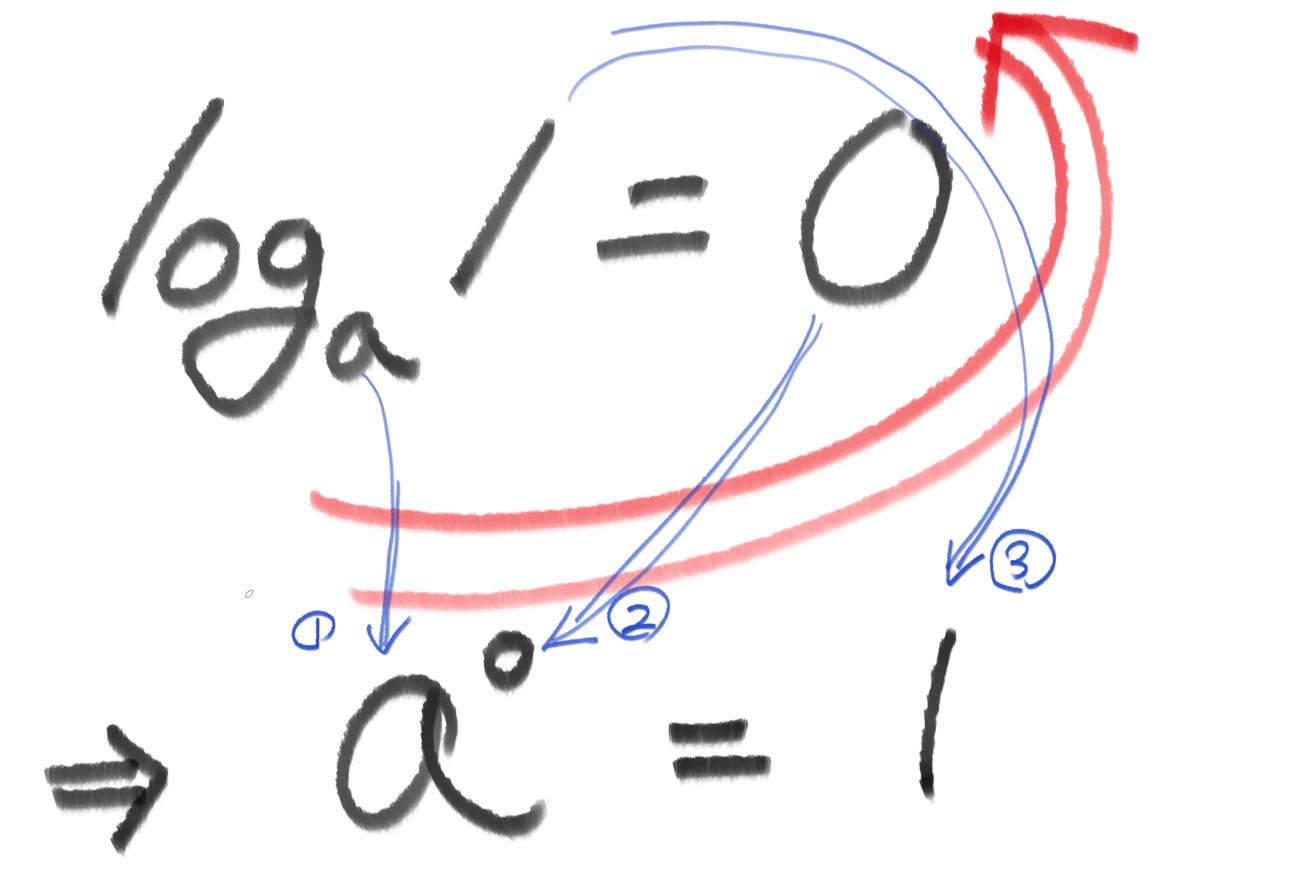 logₐ 1 = 0
① ② ③
⇒ a⁰ = 1